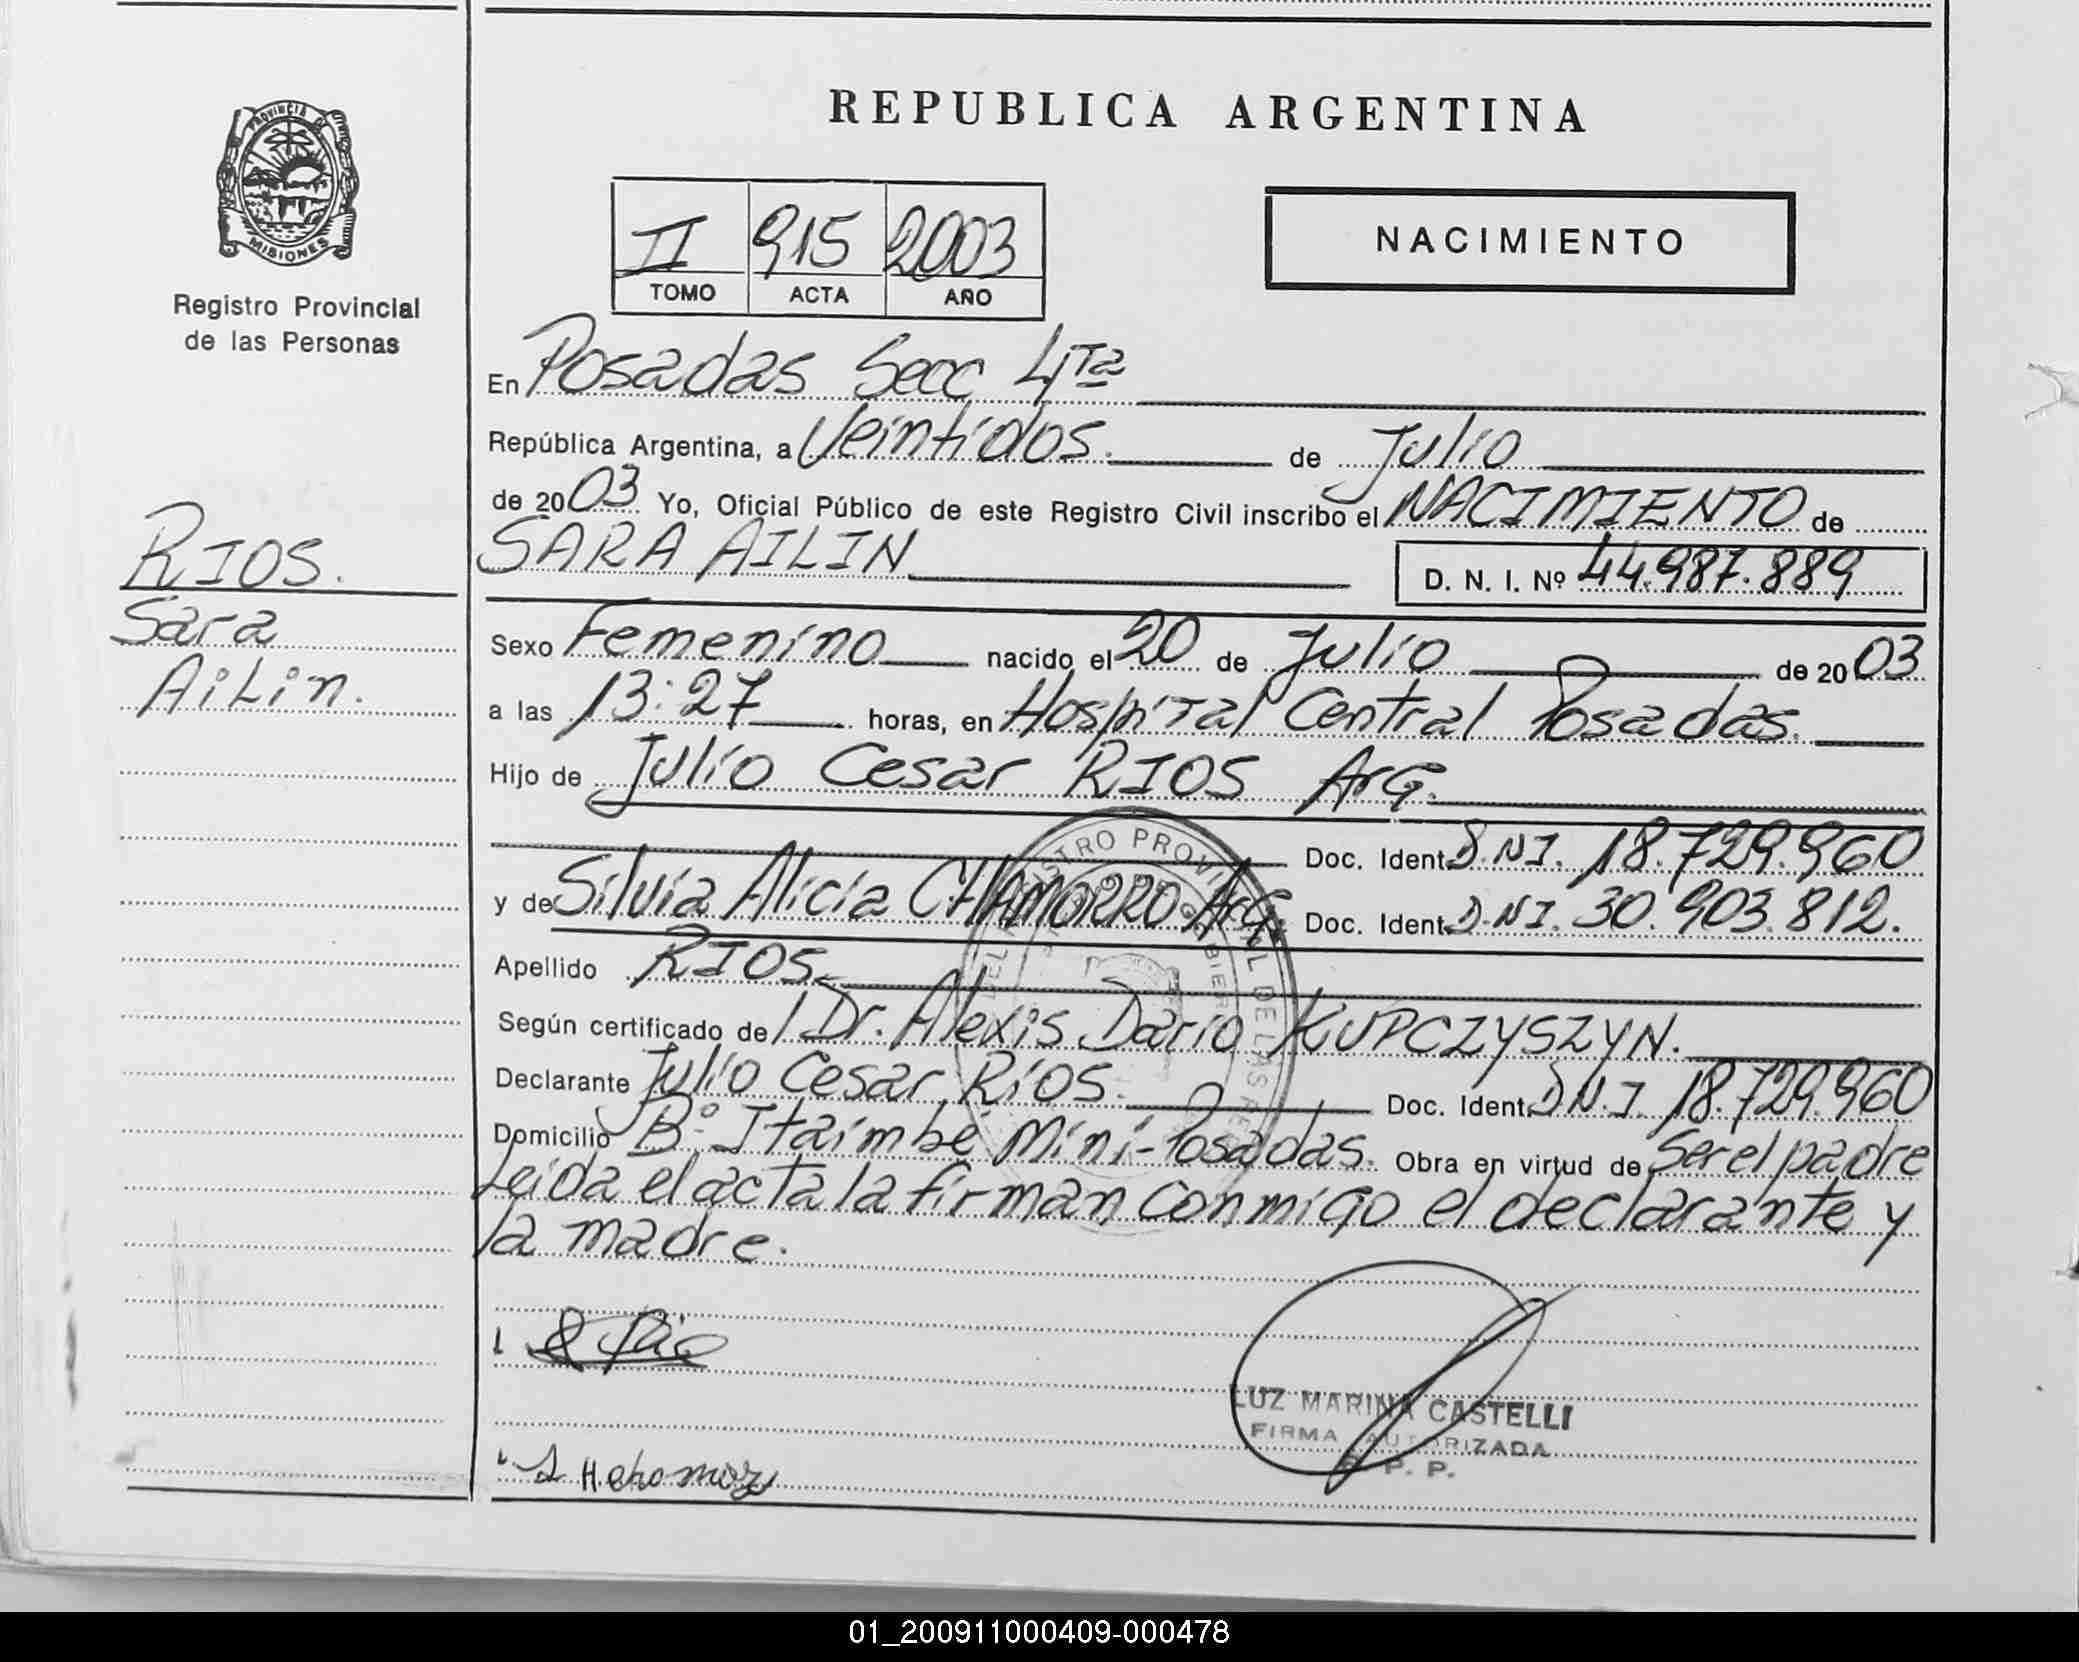 REPUBLICA ARGENTINA
PROVINCIA DE
MISIONES
Registro Provincial
de las Personas
II 915 2003
TOMO ACTA AÑO
NACIMIENTO
En Posadas Secc 4Ta
República Argentina, a Veintidos. de Julio
de 2003 Yo, Oficial Público de este Registro Civil inscribo el NACIMIENTO de
SARA AILIN D. N. I. Nº 44.987.889
RIOS.
Sara
AiLin.
Sexo Femenino nacido el 20 de Julio de 2003
a las 13:27 horas, en Hospital Central Posadas.
Hijo de Julio Cesar RIOS Arg.
Doc. Ident. D.N.I. 18.729.960
y de Silvia Alicia CHAMORRO Arg. Doc. Ident. D.N.I. 30.903.812.
Apellido RIOS
Según certificado del Dr. Alexis Dario KUPCZYSZYN.
Declarante Julio Cesar Rios. Doc. Ident. D.N.I. 18.729.960
Domicilio Bº Itaimbé Mini-Posadas. Obra en virtud de Ser el padre
Leida el acta la firman conmigo el declarante y
la madre.
LUZ MARINA CASTELLI
FIRMA AUTORIZADA
R. P. P.
01_200911000409-000478